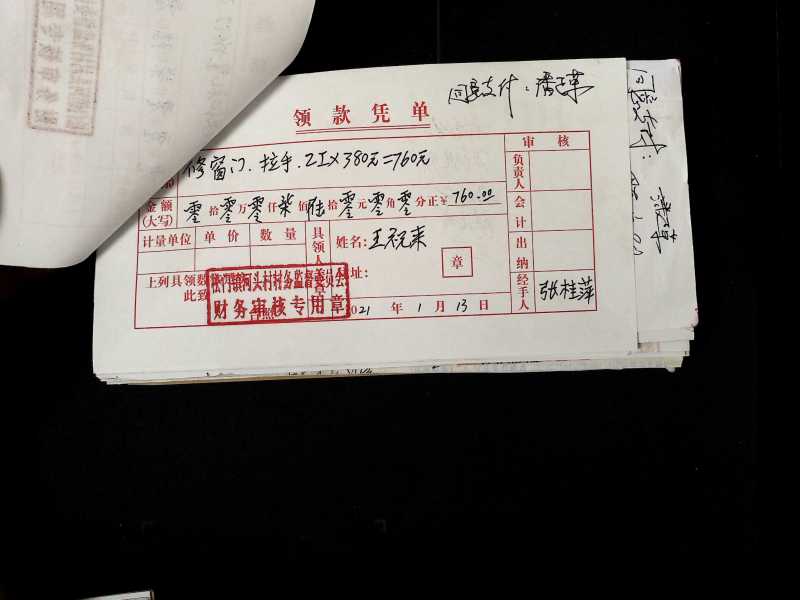 同意支付:
领款凭单
审核
修窗门、拉手、2工×380元=760元
负责人
金额
(大写)
零拾零万零仟柒佰陆拾零元零角零分正¥760.00
会计
计量单位 单价 数量
具领人
姓名:王祝来
章
出纳
上列具领数
此致
址:
河头村村务监督委员会
财务审核专用章
2021年1月13日
经手人
张桂萍